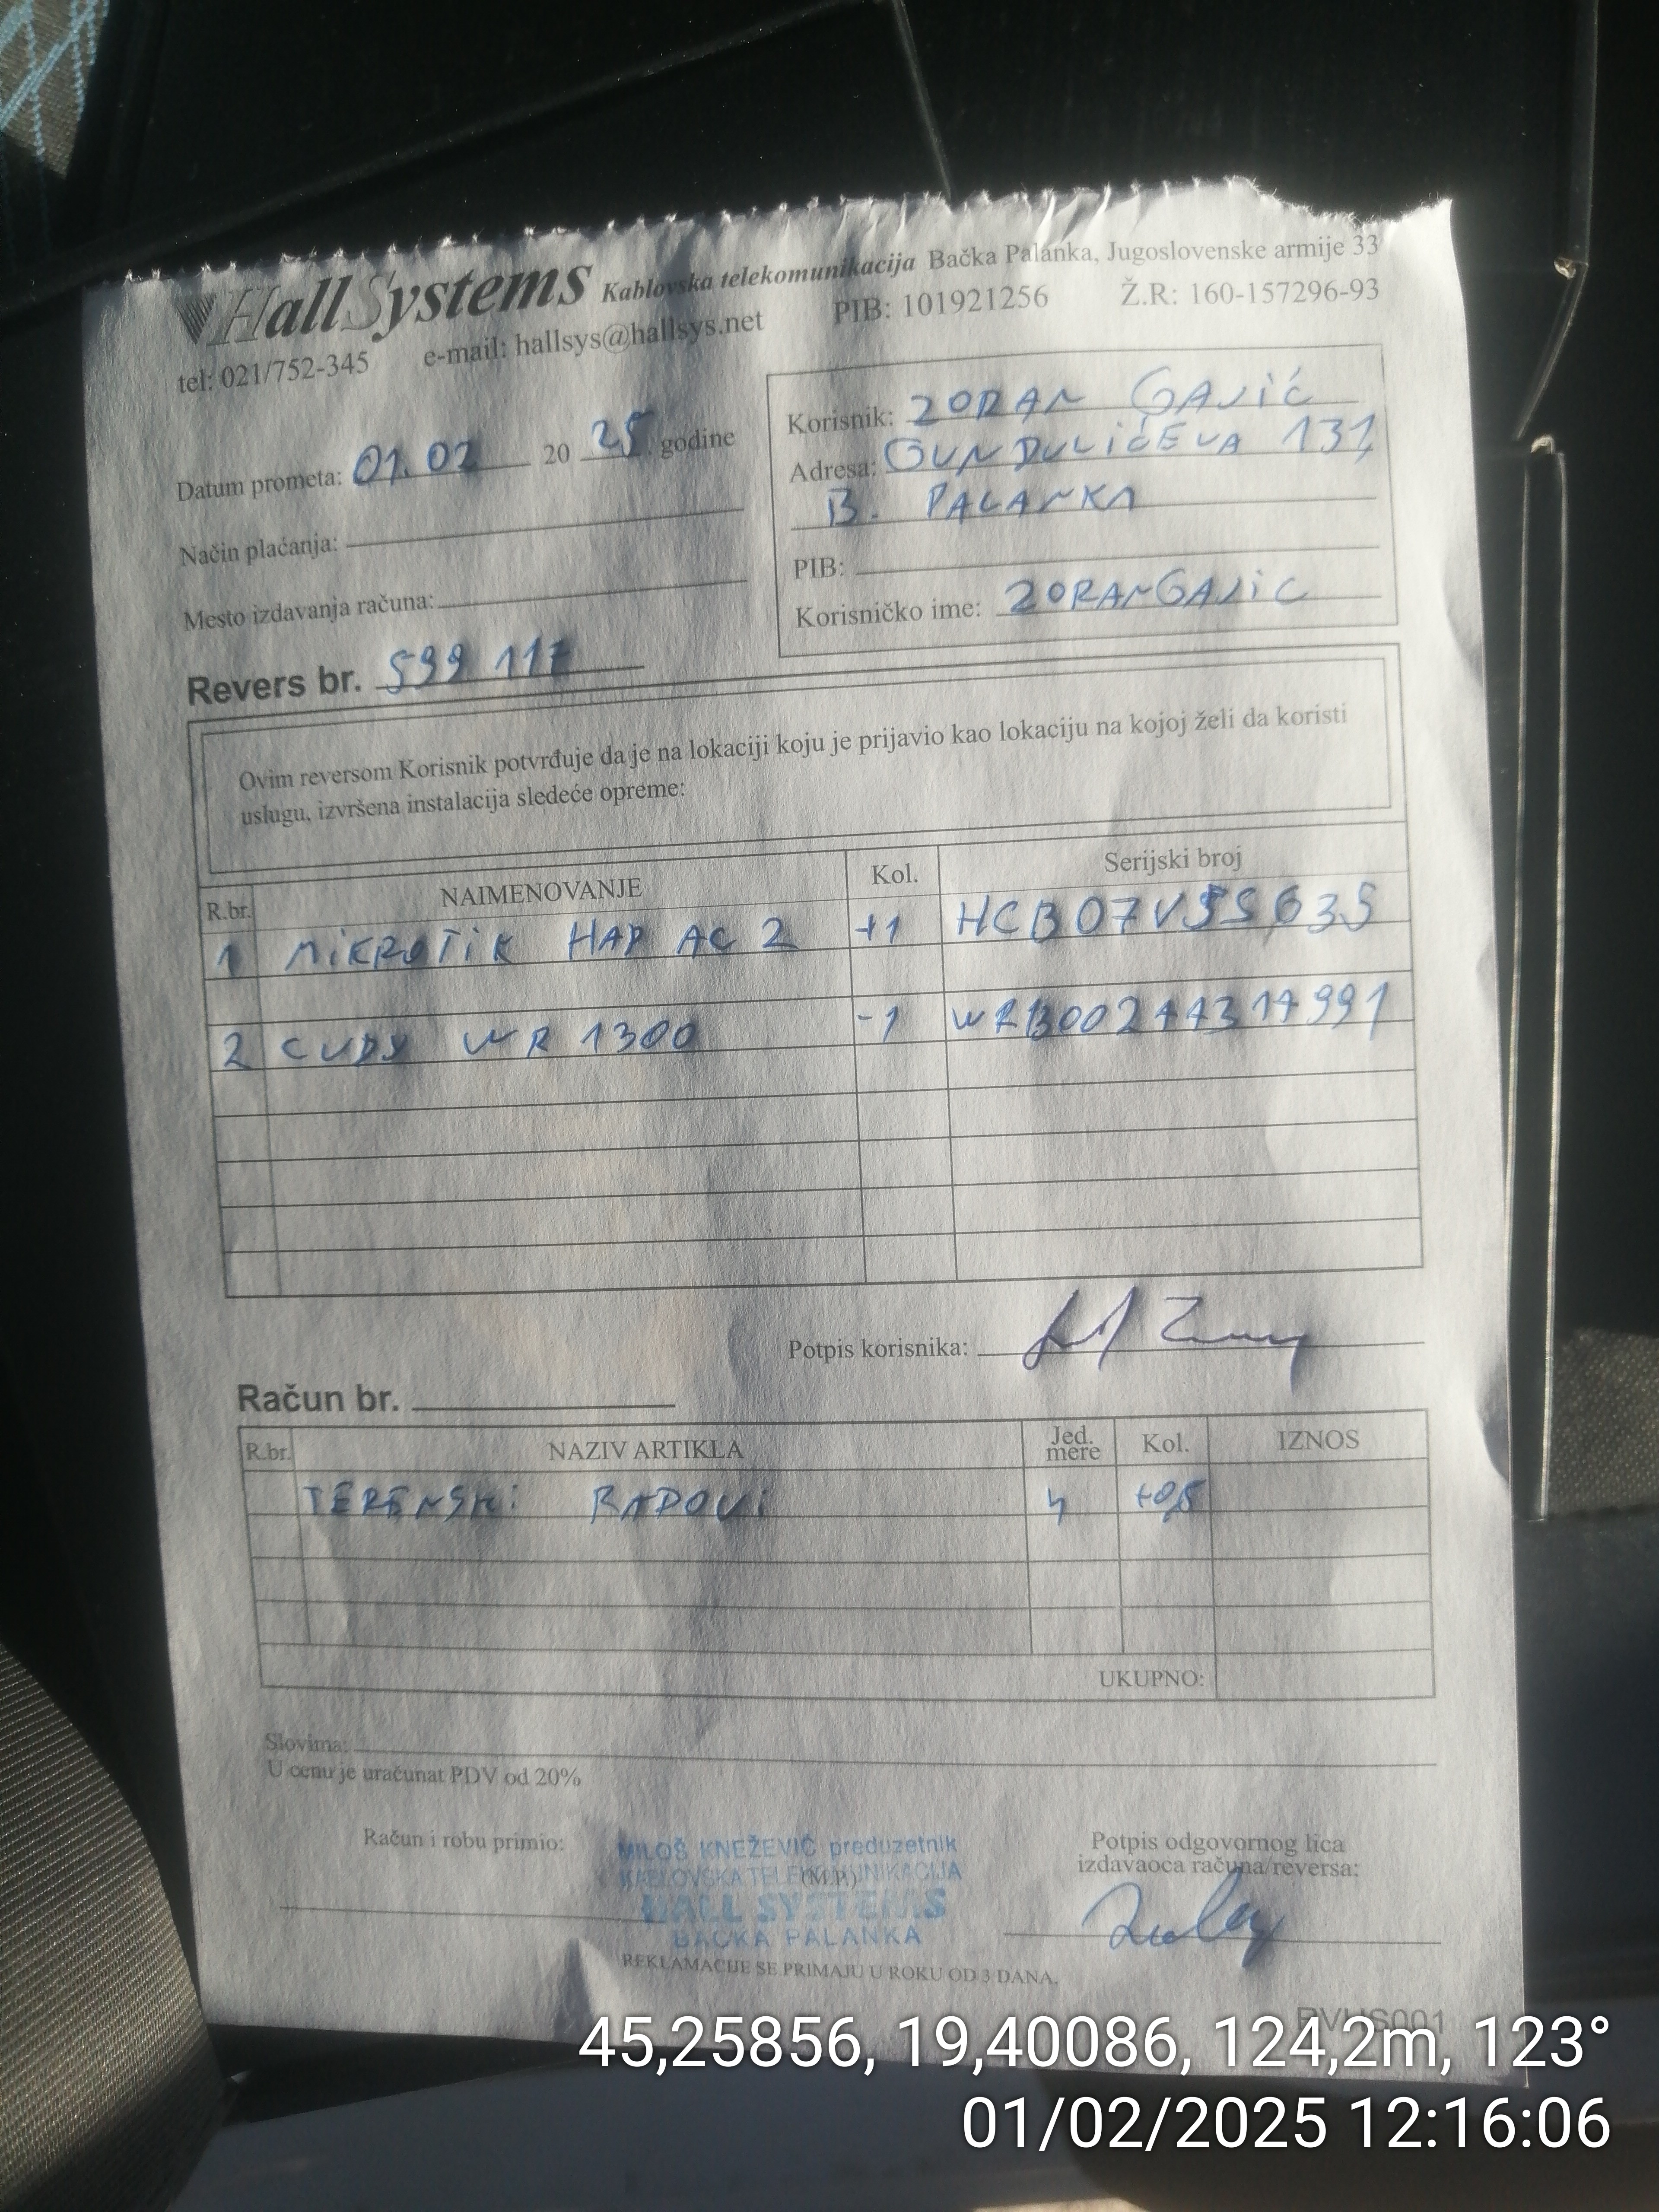 HallSystems Kablovska telekomunikacija Bačka Palanka, Jugoslovenske armije 33
tel: 021/752-345 e-mail: hallsys@hallsys.net PIB: 101921256 Ž.R: 160-157296-93
Datum prometa: 01.02 2025 godine
Način plaćanja:
Mesto izdavanja računa:
Korisnik: ZORAN GAJIĆ
Adresa: GUNDULIĆEVA 131,
B. PALANKA
PIB:
Korisničko ime: ZORANGAJIC
Revers br. 599 117
Ovim reversom Korisnik potvrđuje da je na lokaciji koju je prijavio kao lokaciju na kojoj želi da koristi
uslugu, izvršena instalacija sledeće opreme:
R.br. NAIMENOVANJE Kol. Serijski broj
1 MIKROTIK HAP AC 2 +1
2 CUDY WR 1300 -1
Potpis korisnika:
Račun br.
R.br. NAZIV ARTIKLA Jed. mere Kol. IZNOS
TERENSKI RADOVI h +0,5
UKUPNO:
Slovima:
U cenu je uračunat PDV od 20%
Račun i robu primio:
MILOŠ KNEŽEVIĆ preduzetnik
KABLOVSKA TELEKOMUNIKACIJA
(M.P.)
HALL SYSTEMS
BAČKA PALANKA
Potpis odgovornog lica
izdavaoca računa/reversa:
REKLAMACIJE SE PRIMAJU U ROKU OD 3 DANA.
RVHS001
45,25856, 19,40086, 124,2m, 123°
01/02/2025 12:16:06